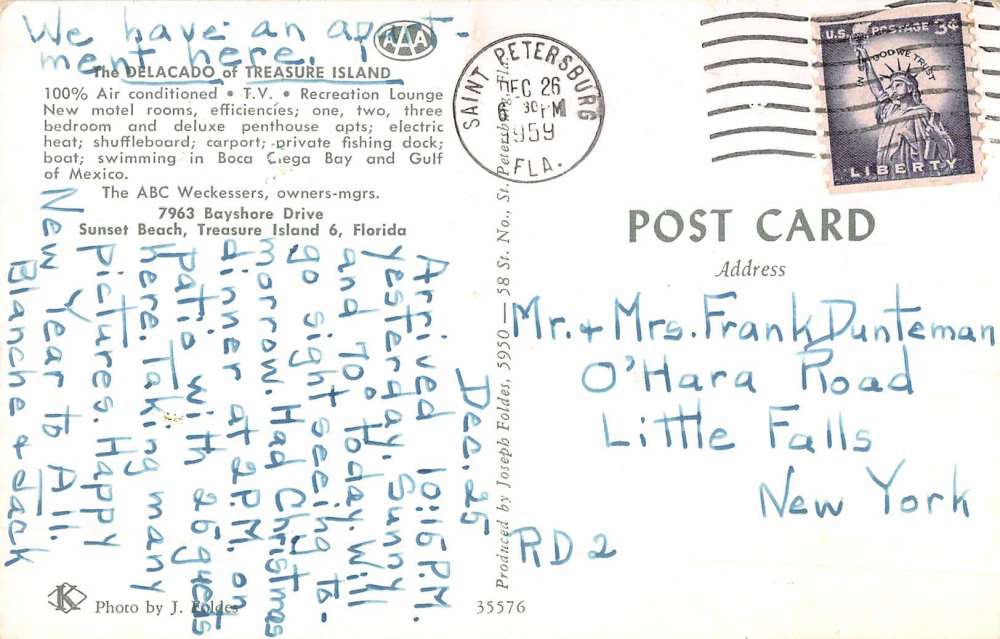 We have an apart-
ment here.
AAA
The DELACADO of TREASURE ISLAND
100% Air conditioned • T.V. • Recreation Lounge
New motel rooms, efficiencies; one, two, three
bedroom and deluxe penthouse apts; electric
heat; shuffleboard; carport; private fishing dock;
boat; swimming in Boca Ciega Bay and Gulf
of Mexico.
The ABC Weckessers, owners-mgrs.
7963 Bayshore Drive
Sunset Beach, Treasure Island 6, Florida
Dec. 25
Arrived 10:15 P.M.
yesterday. Sunny
and 70° today. Will
go sight seeing to-
morrow. Had Christmas
dinner at 2 P.M. on
patio with 25 guests
here. Taking many
pictures. Happy
New Year to All.
Blanche & Jack
K
Photo by J. Foldes
35576
Produced by Joseph Foldes, 5950 — 58 St. No., St. Petersburg, Fla.
SAINT PETERSBURG
DEC 26
6 30 PM
1959
FLA.
U.S. POSTAGE 3¢
IN GOD WE TRUST
LIBERTY
POST CARD
Address
Mr. + Mrs. Frank Dunteman
O'Hara Road
Little Falls
New York
RD 2